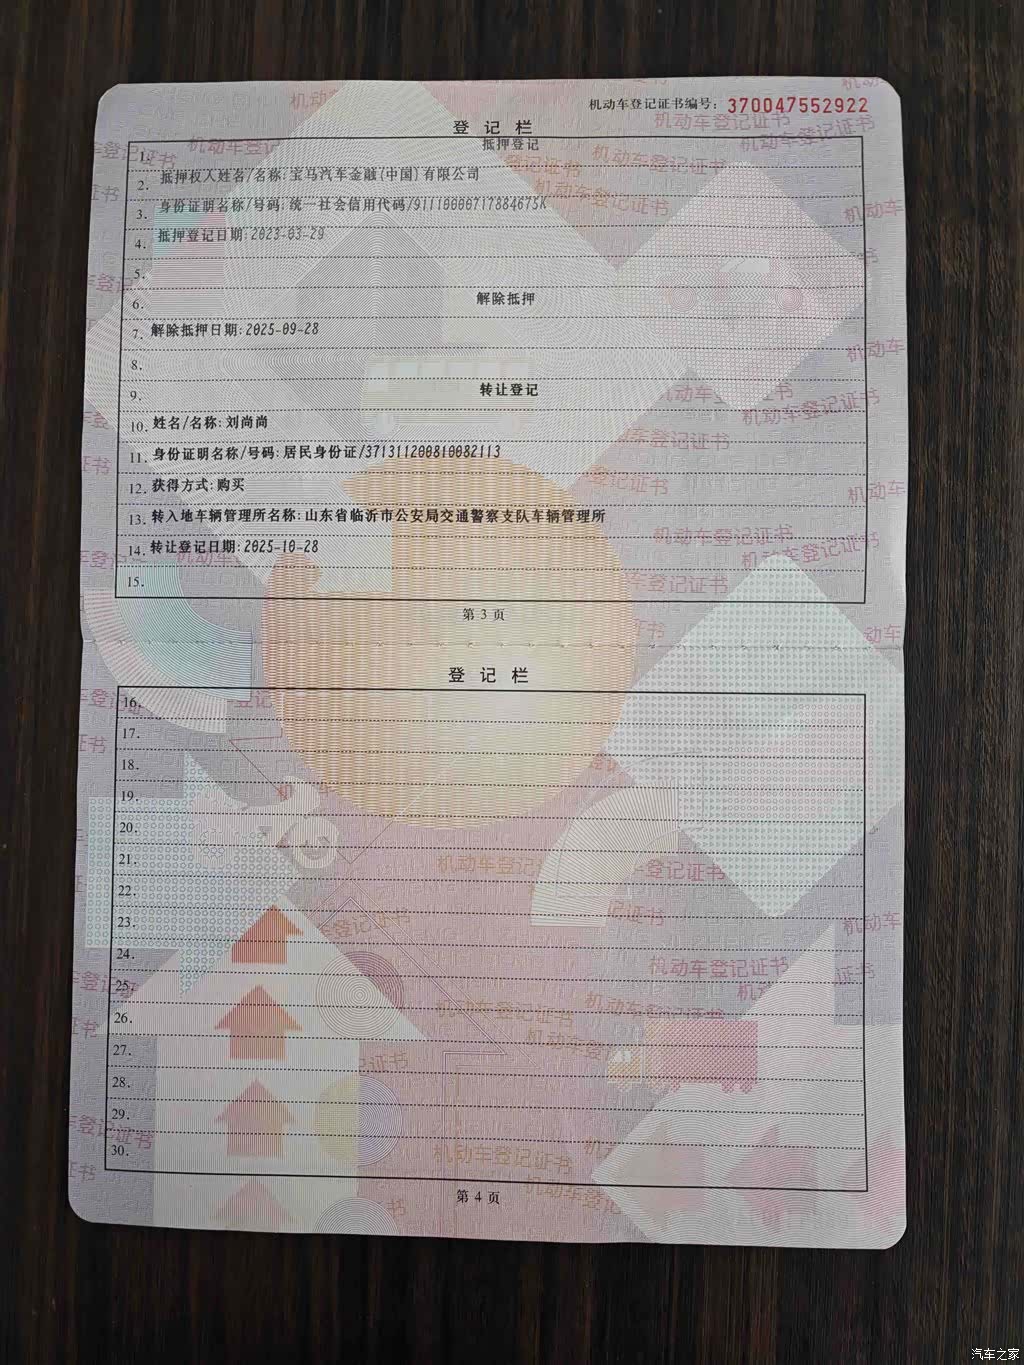 机动车登记证书编号：370047552922
登记栏
1. 抵押登记
2. 抵押权人姓名/名称：宝马汽车金融(中国)有限公司
3. 身份证明名称/号码：统一社会信用代码/91110000717884675K
4. 抵押登记日期：2023-03-29
5.
6. 解除抵押
7. 解除抵押日期：2025-09-28
8.
9. 转让登记
10. 姓名/名称：刘尚尚
11. 身份证明名称/号码：居民身份证/371311200810082113
12. 获得方式：购买
13. 转入地车辆管理所名称：山东省临沂市公安局交通警察支队车辆管理所
14. 转让登记日期：2025-10-28
15.
第 3 页
登记栏
16.
17.
18.
19.
20.
21.
22.
23.
24.
25.
26.
27.
28.
29.
30.
第 4 页
汽车之家